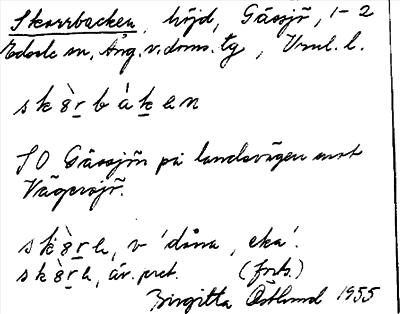 Skorrbacken, höjd, Gässjö, 1-2
Edsele sn, Ång. v. doms. tg, Vrul. l.
skòrbàkan
SO Gässjön på landsvägen mot
Vägersjö.
skòra, v 'dåna, eka'.
skòra, äv. pret. (forts.)
Birgitta Östlund 1955